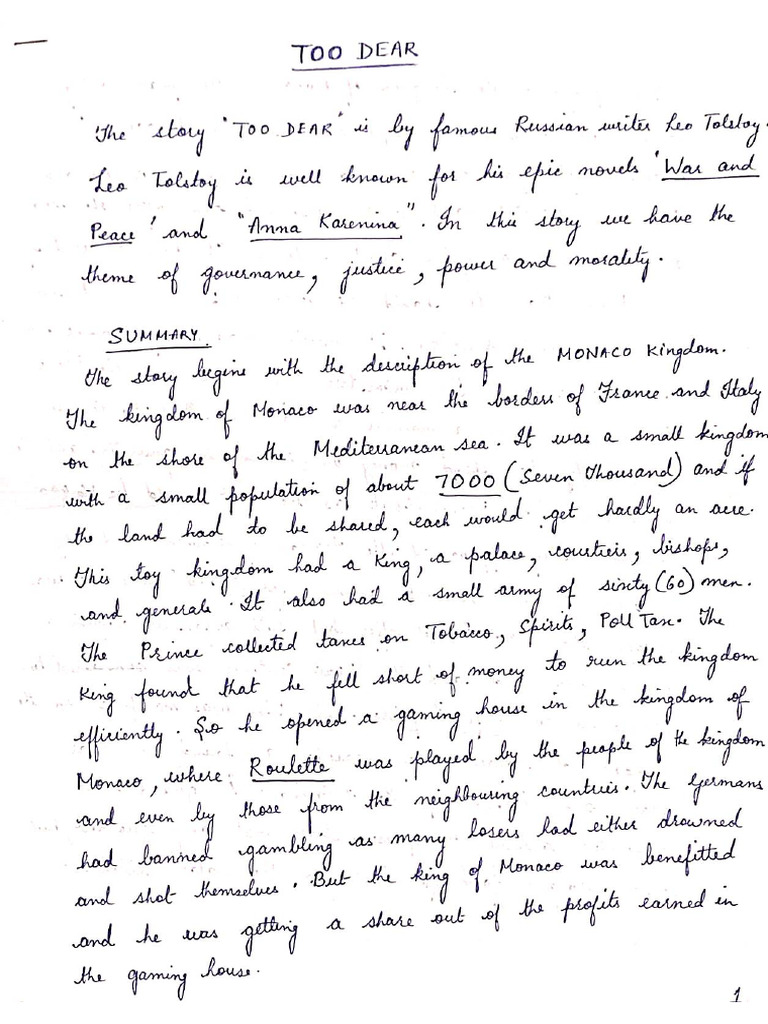 TOO DEAR
The story "TOO DEAR" is by famous Russian writer Leo Tolstoy.
Leo Tolstoy is well known for his epic novels 'War and
Peace' and "Anna Karenina". In this story we have the
theme of governance, justice, power and morality.
SUMMARY.
The story begins with the description of the MONACO Kingdom.
The kingdom of Monaco was near the borders of France and Italy
on the shore of the Mediterranean sea. It was a small kingdom
with a small population of about 7000 (Seven Thousand) and if
the land had to be shared, each would get hardly an acre.
This toy kingdom had a King, a palace, courtiers, bishops,
and generals. It also had a small army of sixty (60) men.
The Prince collected taxes on Tobacco, Spirits, Poll Tax. The
King found that he fell short of money to run the kingdom
efficiently. So he opened a gaming house in the kingdom of
Monaco, where Roulette was played by the people of the kingdom
and even by those from the neighbouring countries. The Germans
had banned gambling as many losers had either drowned
and shot themselves. But the king of Monaco was benefitted
and he was getting a share out of the profits earned in
the gaming house.
1